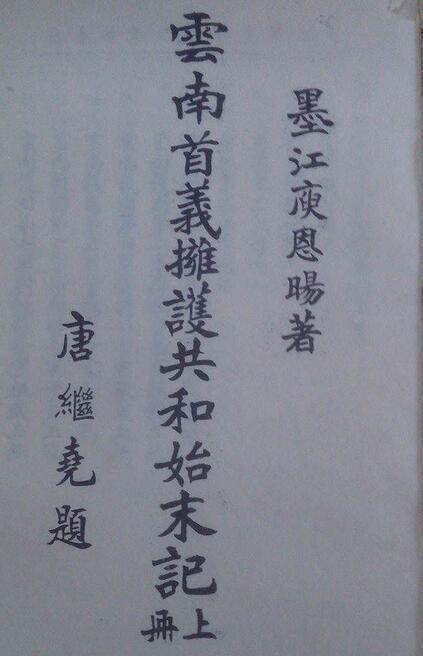 墨江庾恩暘著
雲南首義擁護共和始末記
上冊
唐繼堯題